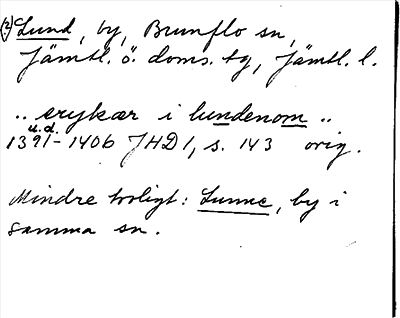 (2) Lund, by, Brunflo sn,
Jämtl. ö. doms. tg, Jämtl. l.
.. erykær i lundenom ..
u.d.
1391-1406 JHD1, s. 143 orig.
Mindre troligt: Lunne, by i
samma sn.